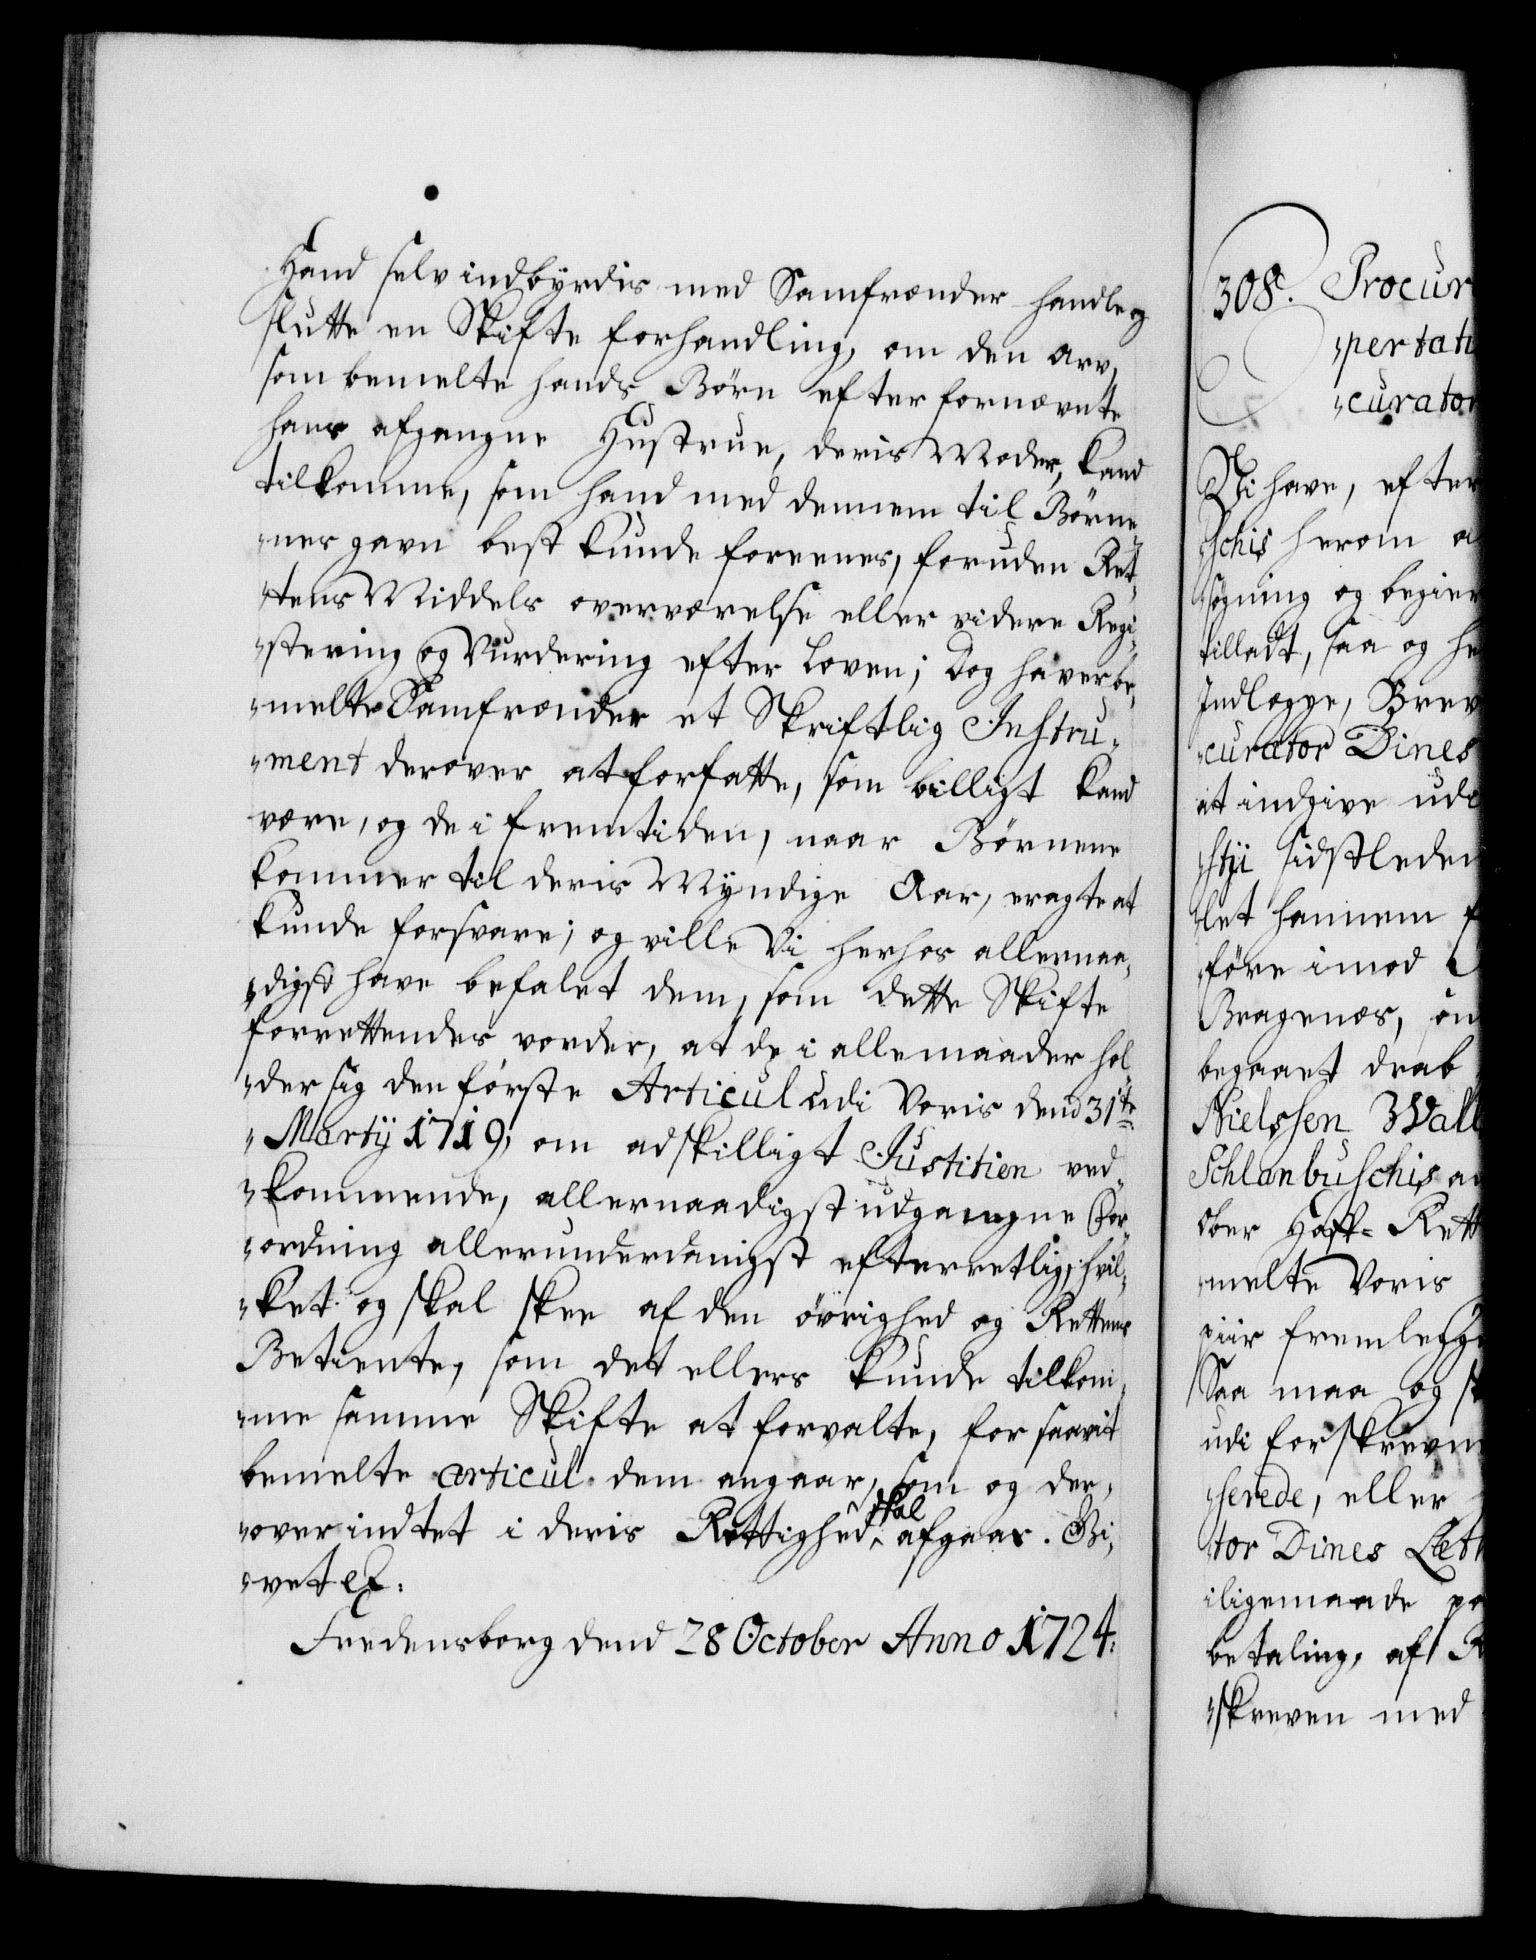 Hand selv indbyrdis med Samfrænder handle og
slutte en Skifte forhandling, om den arv,
som bemelte hands Børn efter fornævnte
hans afgangne Hustrue, deris Moder, kand
tilkomme, som hand med dennem til Børne„
„nes gavn best kunde foreenes, foruden Ret„
„tens Middels overværelse eller videre Regi„
„stering og Vurdering efter Loven; Dog haver be„
„melte Samfrænder et Skriftlig Instru„
„ment derover at forfatte, som billigt kand
være, og de i fremtiden, naar Børnene
kommer til deris Myndige Aar, eragte at
kunde forsvare; og ville Vi herhos allernaa„
„digst have befalet dem, som dette Skifte
forrettendes vorder, at de i alle maader hol„
„der sig den første Articul udi Voris dend 31te
„Martÿ 1719, om adskilligt Justitien ved„
„kommende, allernaadigst udgangne For„
„ordning allerunderdanigst efterretlig, hvil„
„ket og skal skee af den øvrighed og Rettens
Betiente, som det ellers kunde tilkom„
„me samme Skifte at forvalte, for saavit
bemelte articul dem angaar, som og der„
„over indtet i deris Rettighed skal afgaar. Gi„
„vet etc.
Fredensborg dend 28 October Anno 1724.
308. Procur
„pertati
„curator
Vi have, efter
„schis herom a
„søgning og begier
tilladt, saa og he
Indlægge, Brev
„curator Dines
at indgive udi
„stÿ sidstleden
„let hannem f
„føre imod
Bragenæs, om
begaaet drab
Nielssen Wall
Schlanbuschis a
Ober Hoff-Rett
„melte Voris
piir fremlegge
Saa maa og s
udi forskrevne
„serede, eller
„tor Dines Læt
iligemaade pa
betaling, af R
„skreven med